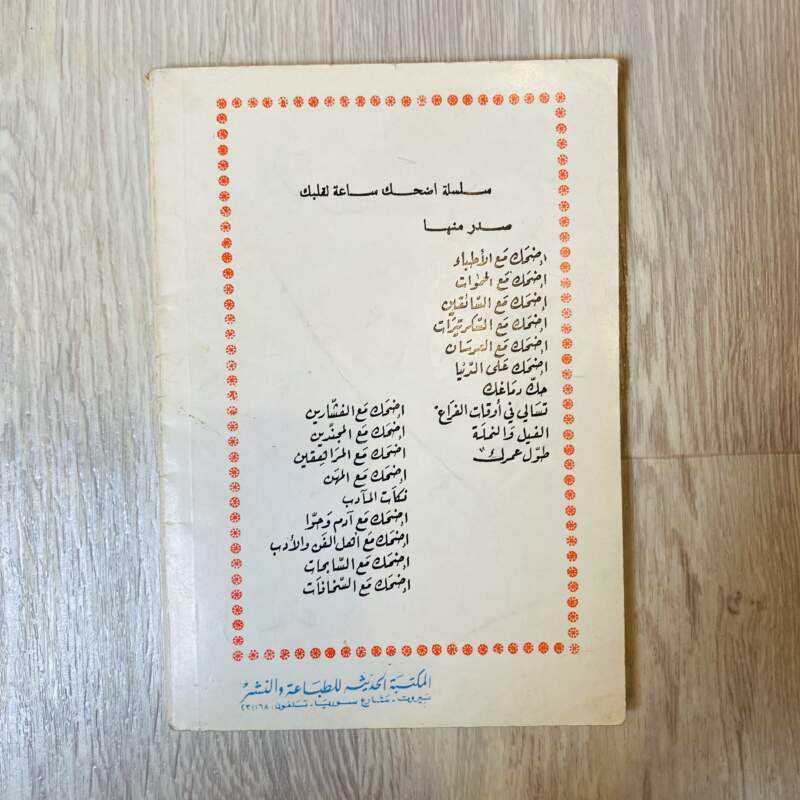 سلسلة اضحك ساعة لقلبك
صدر منها
إضحك مع الأطباء
إضحك مع الحموات
إضحك مع السائقين
إضحك مع السكرتيرات
إضحك مع العرسان
إضحك على الدنيا
حك دماغك
تسالي في أوقات الفراغ
الفيل والنملة
طوّل عمرك
إضحك مع الفشّارين
إضحك مع المجنّدين
إضحك مع المراهقين
إضحك مع المهن
نكات المآدب
إضحك مع آدم وحوّا
إضحك مع أهل الفن والأدب
إضحك مع السابحات
إضحك مع السخافات
المكتبة الحديثة للطباعة والنشر
بيروت - شارع سوريا - تلفون: